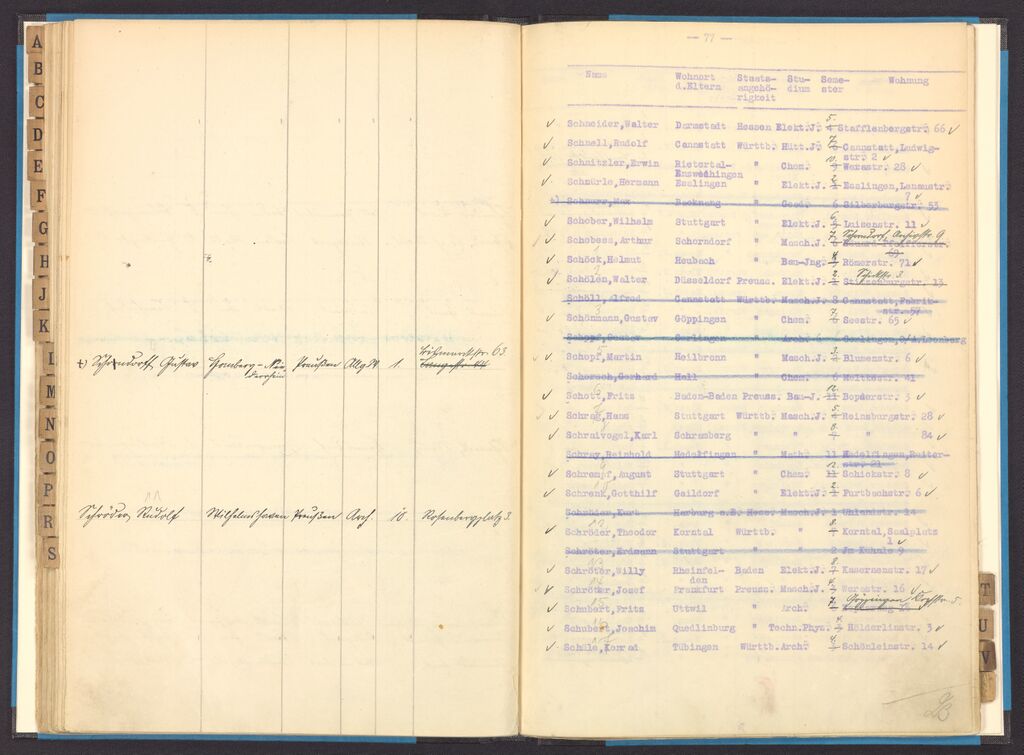 A
B
C
D
E
F
G
H
J
K
L
M
N
O
P
R
S
Gustav Homberg - Nie- Preußen 1. 63.
derrhein
Schröder Rudolf Wilhelmshaven Preußen Arch. 10. Rosenbergplatz 3.
— 77 —
Name Wohnort d.Eltern Staats- angehö- rigkeit Stu- dium Seme- ster Wohnung
Schneider,Walter Darmstadt Hessen Elekt.J. 5. 4 Stafflenbergstr. 66
Schnell,Rudolf Cannstatt Württb. Hütt.J. 7. Cannstatt,Ludwig-
str. 2
Schnitzler,Erwin Rietertal- " Chem. 10. 9 Werastr. 28
Ensweihingen
Schnürle,Hermann Esslingen " Elekt.J. 2. 1 Esslingen,Lenaustr.
9
Schnurr,Max Backnang " Geod. 6 Silberburgstr. 53
Schober,Wilhelm Stuttgart " Elekt.J. 6. Luisenstr. 11
Schobess,Arthur Schorndorf " Masch.J. 7. Schorndorf, Archivstr. 9
69
Schöck,Helmut Heubach " Bau-Jng. Römerstr. 71
Schölen,Walter Düsseldorf Preuss. Elekt.J. 2. Schickstr. 3.
Stitzenburgstr. 13
Schöll,Alfred Cannstatt Württb. Masch.J. 8 Cannstatt,Fabrik-
str. 57
Schönmann,Gustav Göppingen " Chem. 7. Seestr. 65
Schopf,Gustav Gerlingen " Arch. 6 Gerlingen,O/A.Leonberg
Schopf,Martin Heilbronn " Masch.J. 3. Blumenstr. 6
Schorsch,Gerhard Hall " Chem. 6 Moltkestr. 41
Schott,Fritz Baden-Baden Preuss. Bau-J. 12. 11 Bopserstr. 3
Schrag,Hans Stuttgart Württb. Masch.J. 5. Reinsburgstr. 28
Schraivogel,Karl Schramberg " " 8. " 84
Schray,Reinhold Hedelfingen " Math. 11 Hedelfingen,Reiter-
str. 21
Schrempf,August Stuttgart " Chem. 12. 11 Schickstr. 8
Schrenk,Gotthilf Gaildorf " Elekt.J. 2. Furtbachstr. 6
Schröder,Kurt Harburg a.E. Masch.J. 1 Uhlandstr. 14
Schröder,Theodor Korntal Württb. " 8. Korntal,Saalplatz
1
Schröter,Erdmann Stuttgart " " 2 Jm Kühnle 9
Schröter,Willy Rheinfel- Baden Elekt.J. 8. 7 Kasernenstr. 17
den
Schröter,Josef Frankfurt Preuss. Masch.J. Werastr. 16
Schubert,Fritz Uttwil " Arch. 7.
Schubert,Joachim Quedlinburg " Techn.Phys. Hölderlinstr. 3
Schüle,Konrad Tübingen Württb. Arch. 4. Schönleinstr. 14
T
U
V